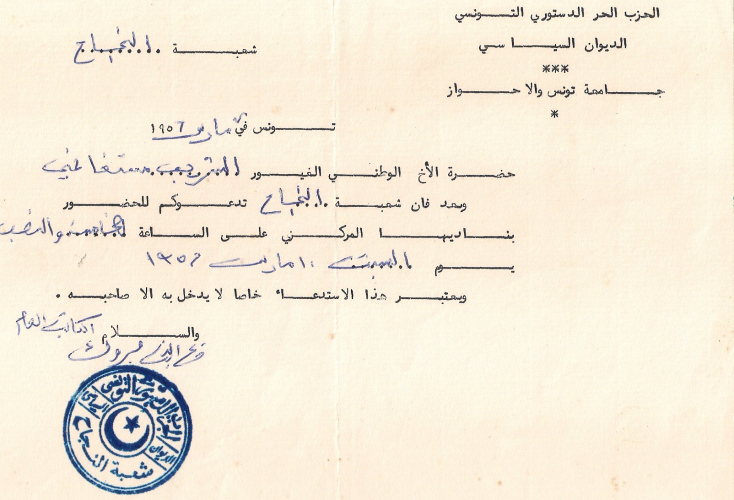 الحزب الحر الدستوري التونسي
الديوان السياسي
***
جامعة تونس والاحواز
*
شعبة النجاح
تونس في مارس ١٩٥٦
حضرة الأخ الوطني الغيور
وبعد فان شعبة النجاح تدعوكم للحضور
بناديها المركزي على الساعة الخامسة والنصف
يوم السبت ١٠ مارس ١٩٥٦
ويعتبر هذا الاستدعاء خاصا لا يدخل به الا صاحبه .
والسلام الكاتب العام
الحزب الحر الدستوري التونسي
الديوان السياسي
شعبة النجاح